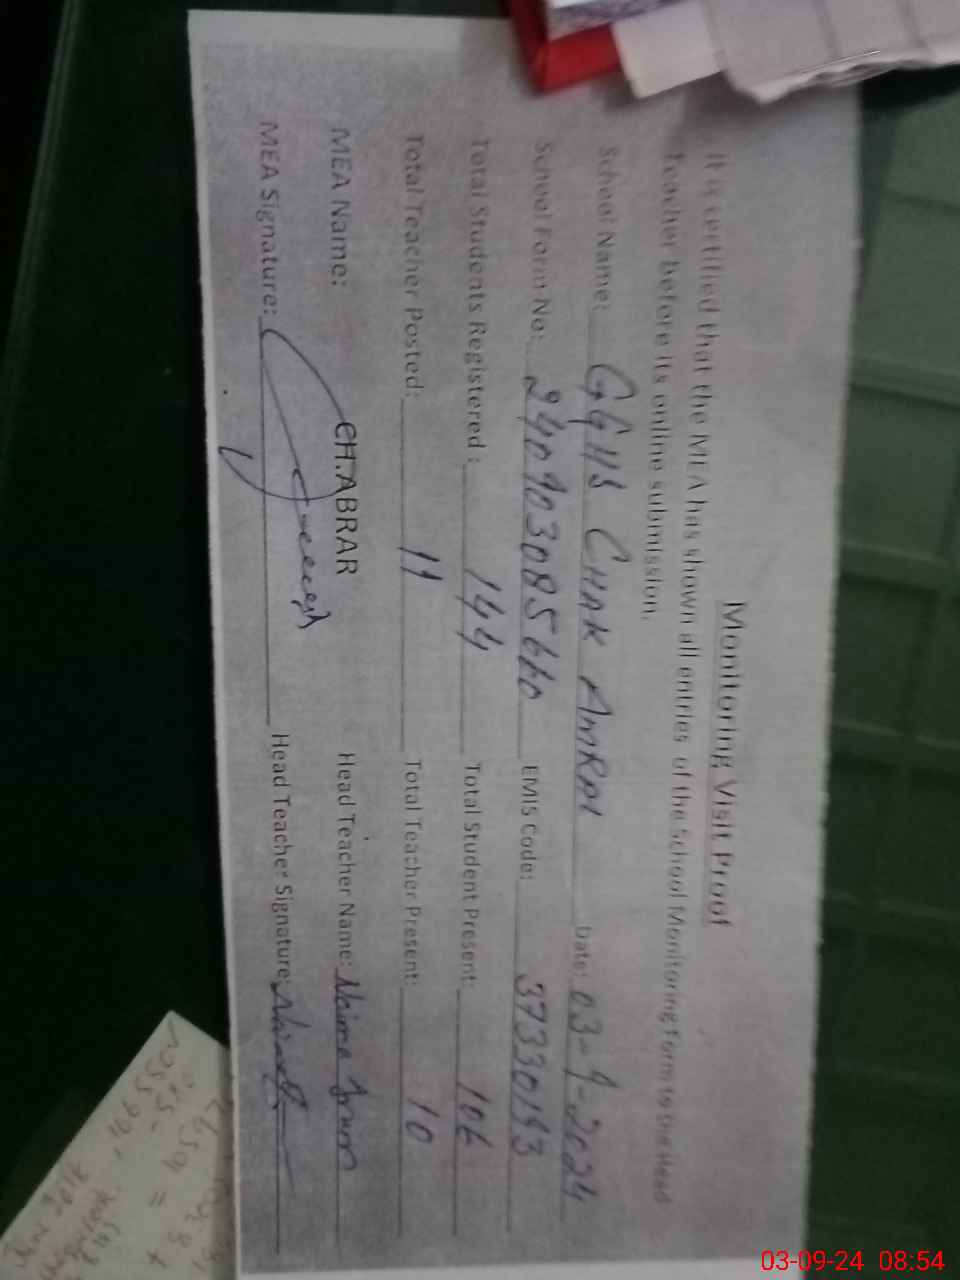 Monitoring Visit Proof
It is certified that the MEA has shown all entries of the School Monitoring Form to the Head
Teacher before its online submission.
School Name: GGHS CHAK AMRAL Date: 03-9-2024
School Form No: 240903085660 EMIS Code: 37330193
Total Students Registered : 144 Total Student Present: 106
Total Teacher Posted: 11 Total Teacher Present: 10
MEA Name: CH.ABRAR Head Teacher Name: Naima
MEA Signature: Head Teacher Signature:
03-09-24 08:54